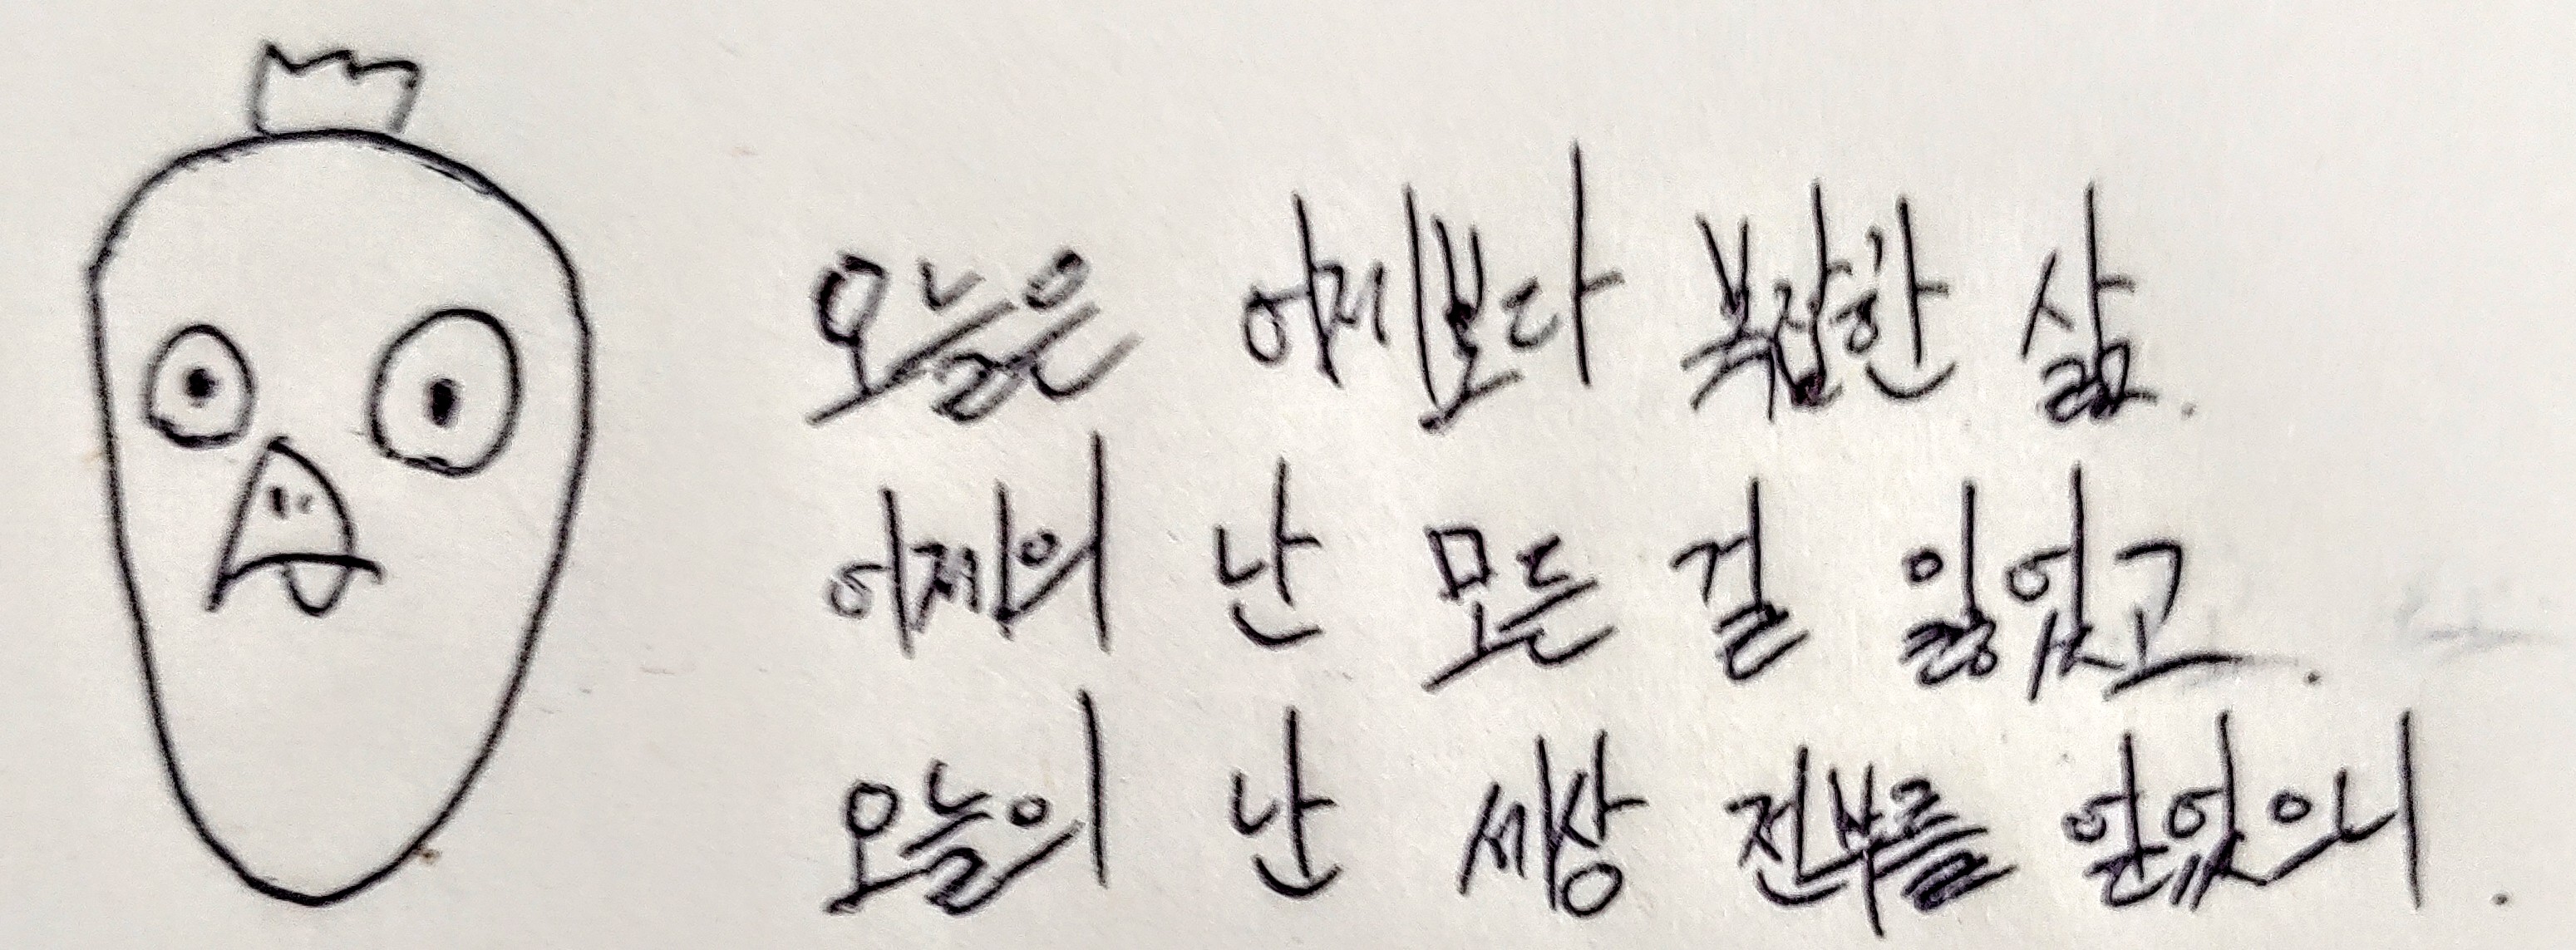 오늘은 어제보다 복잡한 삶.
어제의 난 모든 걸 잃었고.
오늘의 난 세상 전부를 얻었으니.